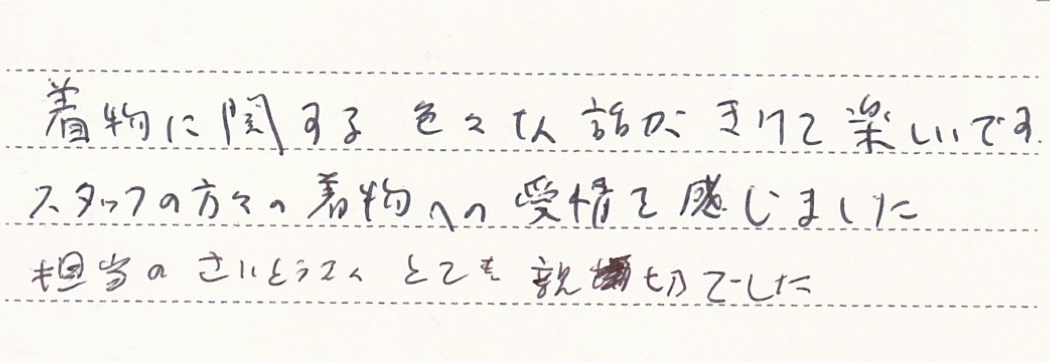 着物に関する色々な話がきけて楽しいです
スタッフの方々の着物への愛情を感じました
担当のさいとうさんとても親切でした